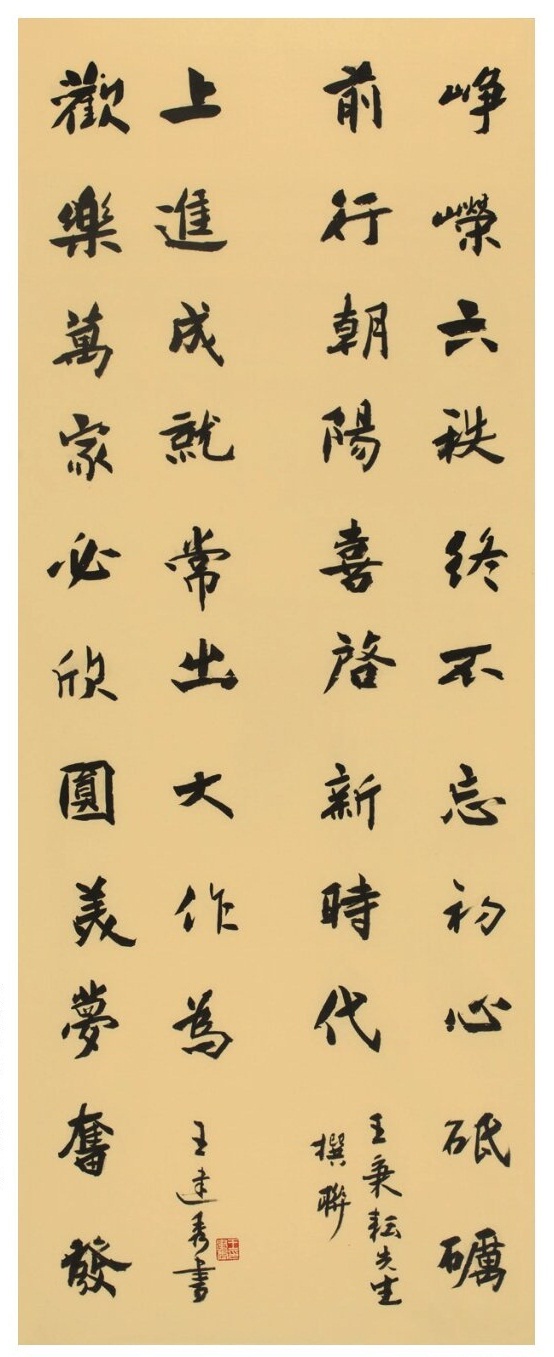 峥嶸六秩終不忘初心砥礪
前行朝陽喜啓新時代
王秉耘先生
撰聯
歡樂萬家必欣圓美夢奮發
上進成就常出大作為
王建秀書